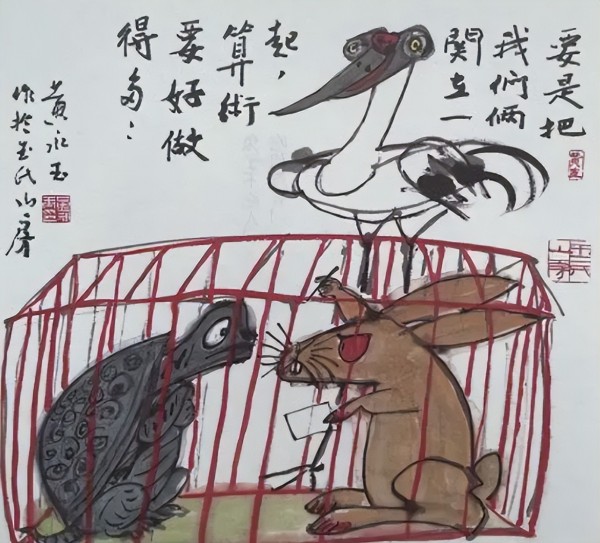 要是把
我們倆
関在一
起，
算術
要好做
得多：
黄永玉
作於玉氏山房